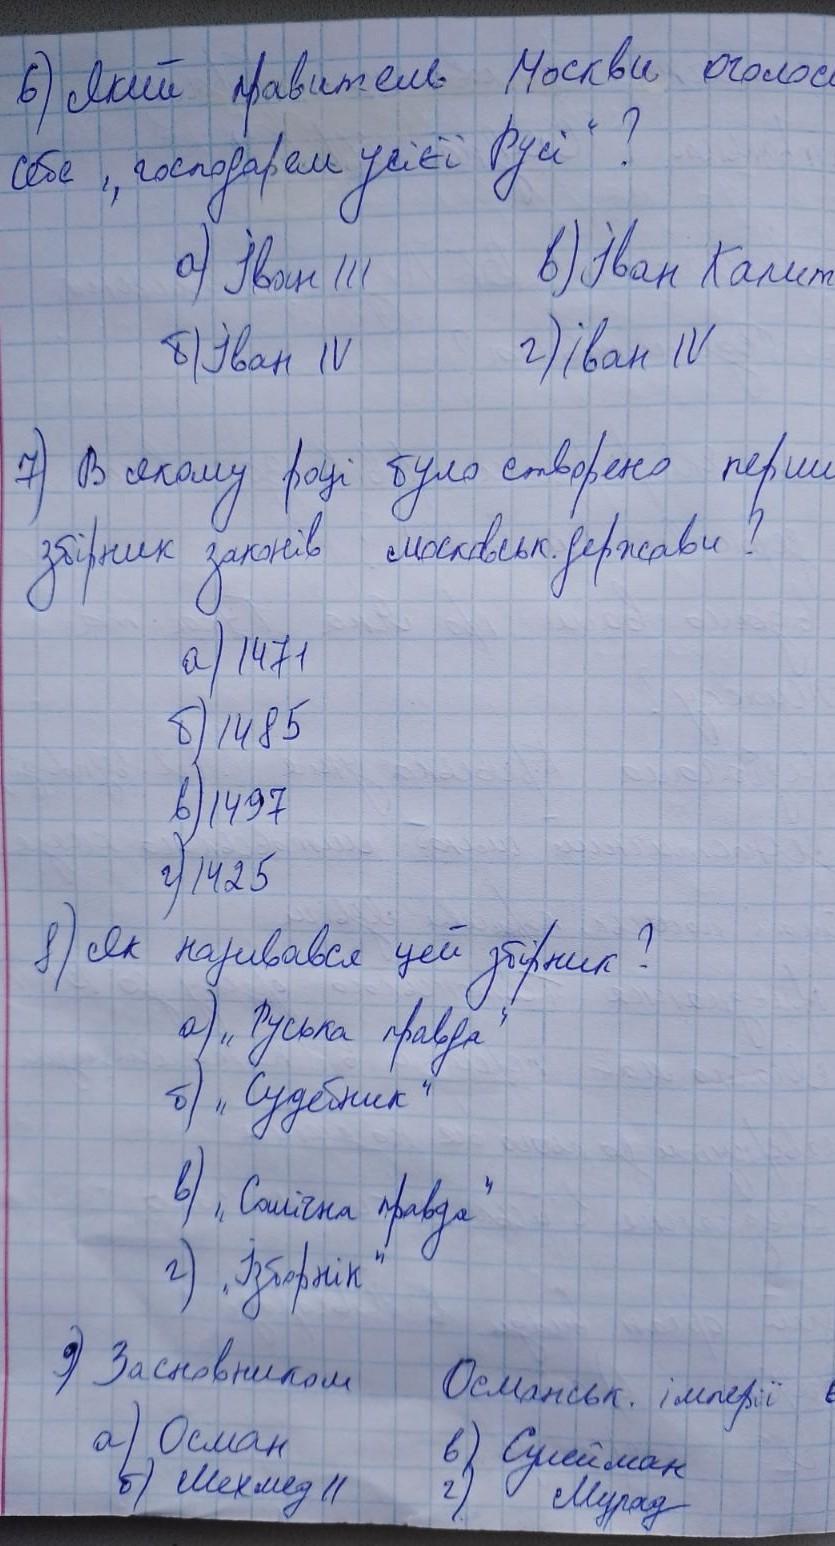 6) Який правитель Москви оголос
себе „господарем усієї Русі“?
а) Іван III в) Іван Калит
б) Іван IV г) Іван IV
7) В якому році було створено перши
збірник законів московськ. держави?
а) 1471
б) 1485
в) 1497
г) 1425
8) Як називався цей збірник?
а) „Руська правда“
б) „Судебник“
в) „Салічна правда“
г) „Ізборнік“
9) Засновником Османськ. імперії
а) Осман в) Сулейман
б) Мехмед II г) Мурад